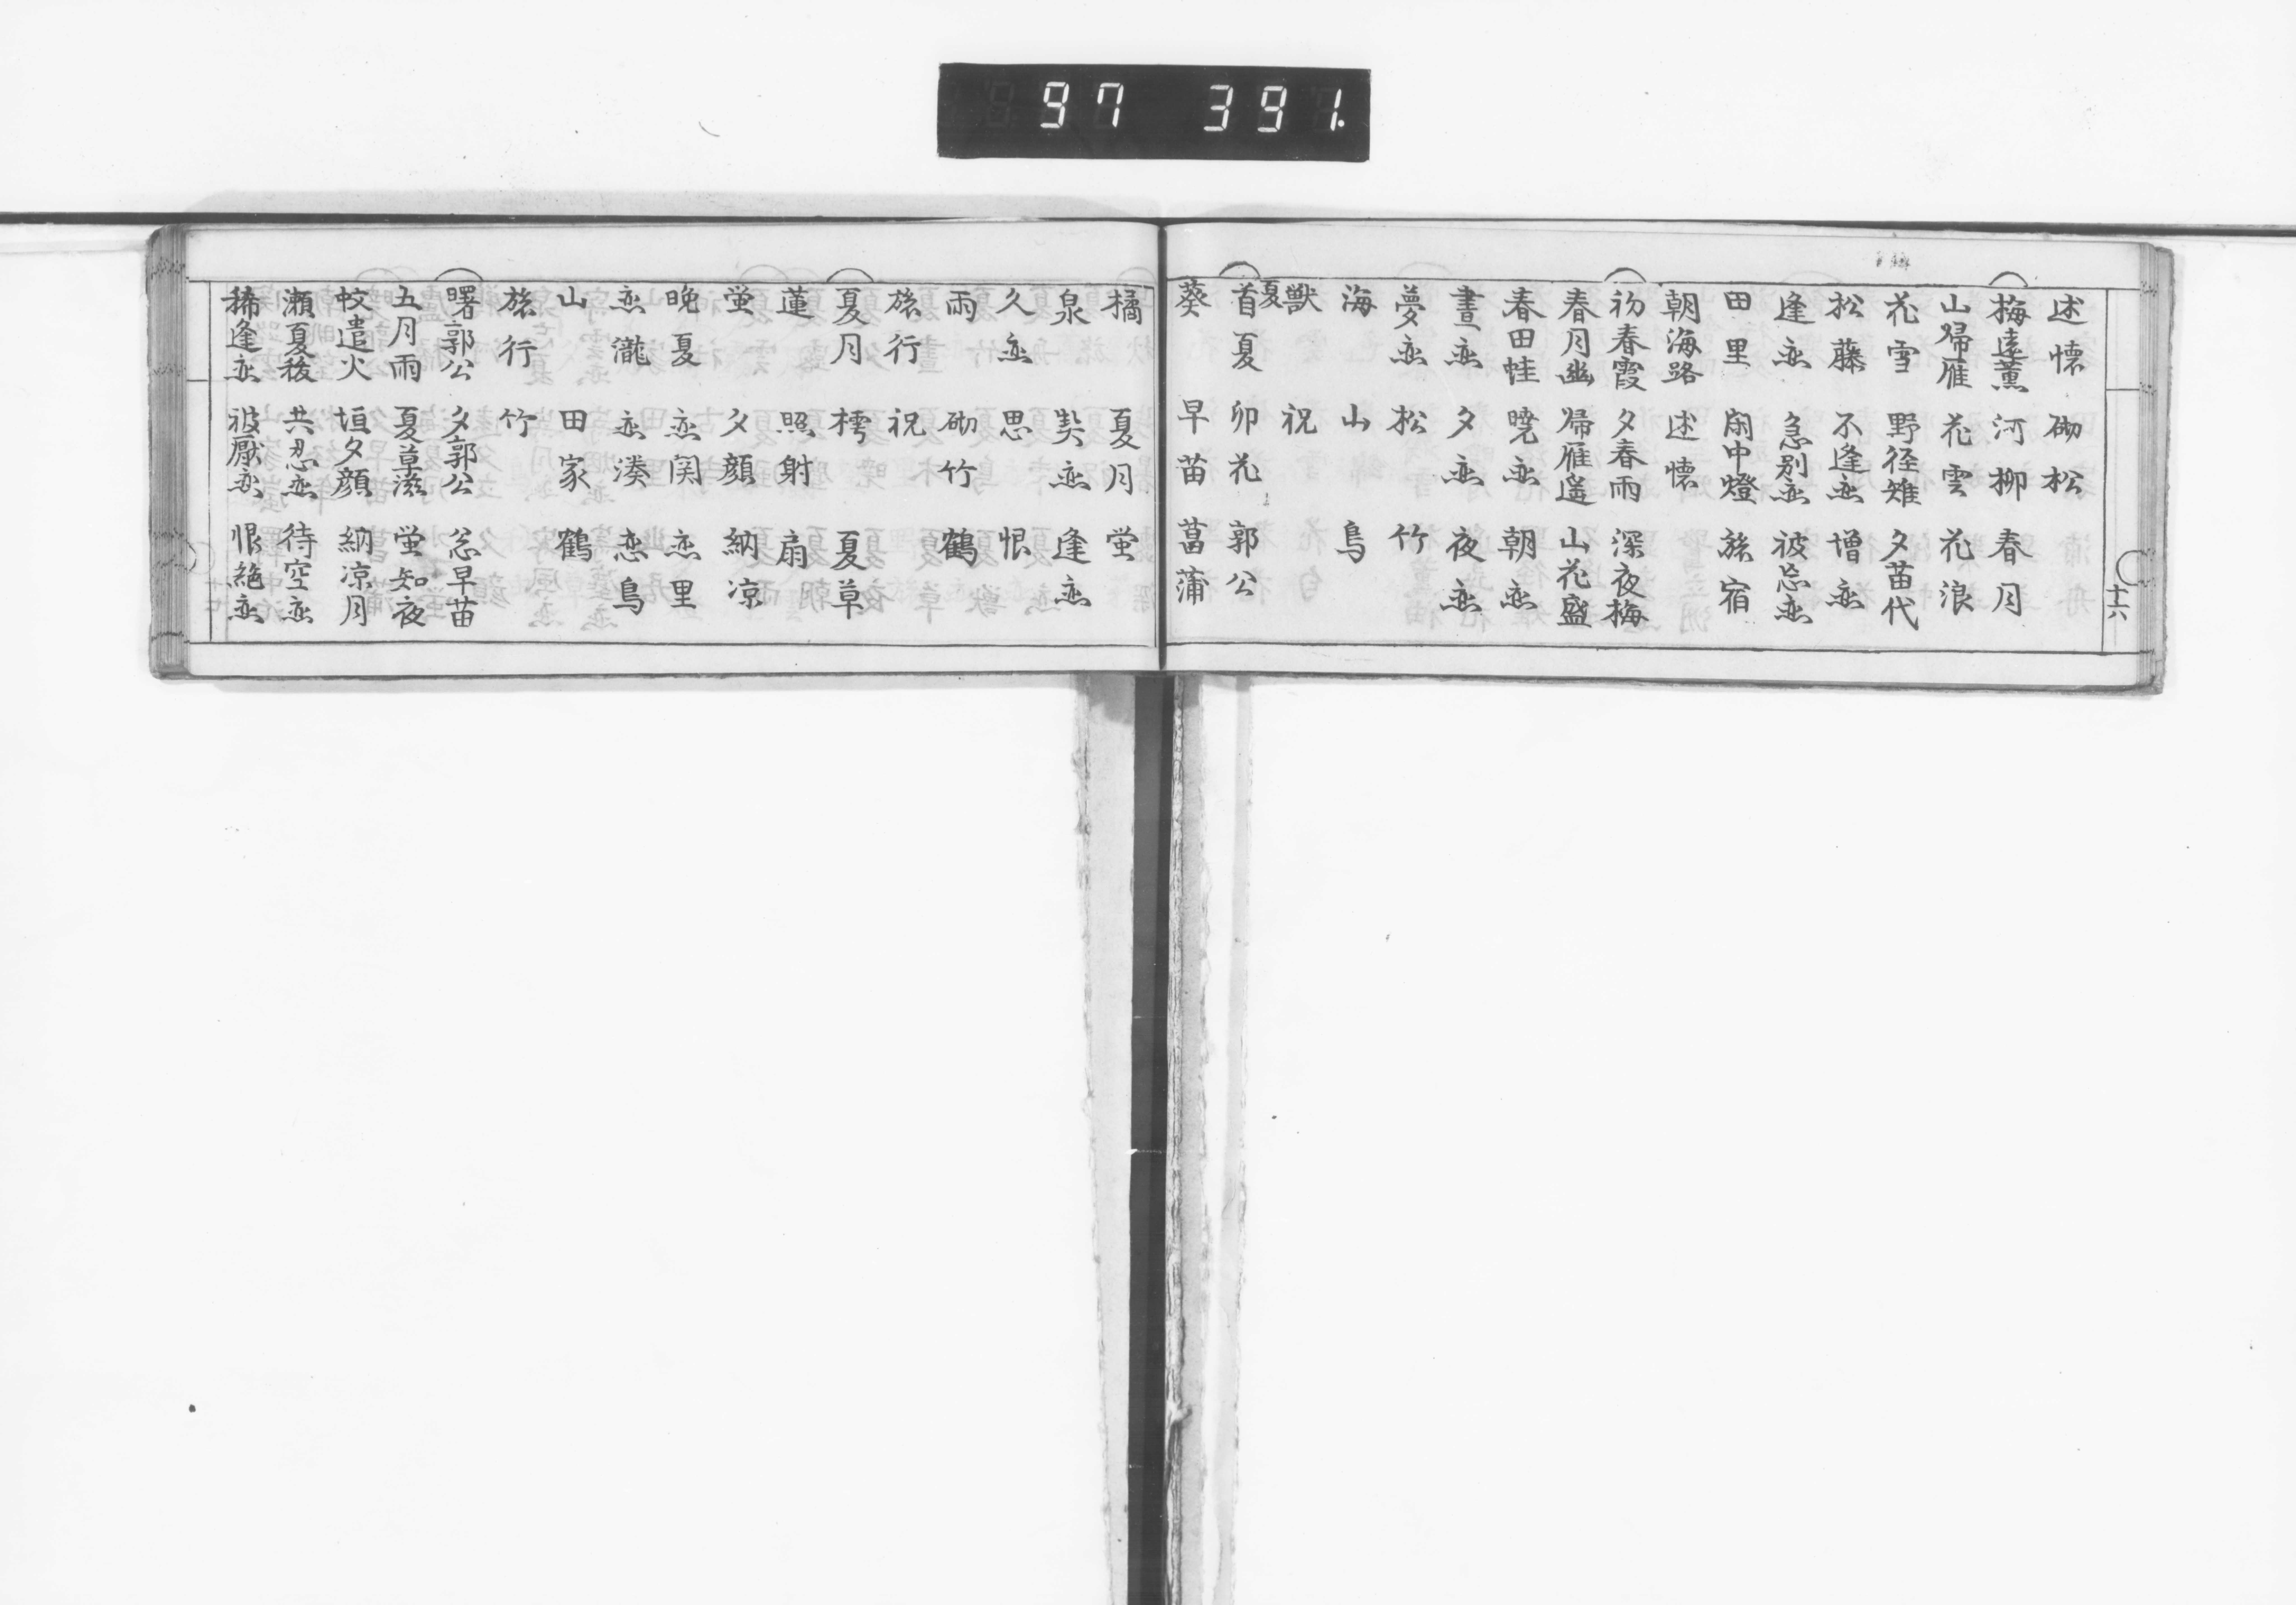 97 391.
十六
述懐 砌松
梅遠薫 河柳 春月
山帰雁 花雲 花浪
花雪 野径雉 夕苗代
松藤 不逢恋 増恋
逢恋 急別恋 被忘恋
田里 閑中燈 旅宿
朝海路 述懐
初春霞 夕春雨 深夜梅
春月幽 帰雁遥 山花盛
春田蛙 暁恋 朝恋
晝恋 夕恋 夜恋
夢恋 松 竹
海 山 鳥
獣 祝
夏
首夏 卯花 郭公
葵 早苗 菖蒲
橘 夏月 蛍
泉 契恋 逢恋
久恋 思 恨
雨 砌竹 鶴
旅行 祝
夏月 樗 夏草
蓮 照射 扇
蛍 夕顔 納凉
晩夏 恋関 恋里
恋瀧 恋湊 恋鳥
山 田家 鶴
旅行 竹
曙郭公 夕郭公 忩早苗
五月雨 夏草滋 蛍知夜
蚊遣火 垣夕顔 納凉月
瀬夏祓 共忍恋 待空恋
稀逢恋 被厭恋 恨絶恋